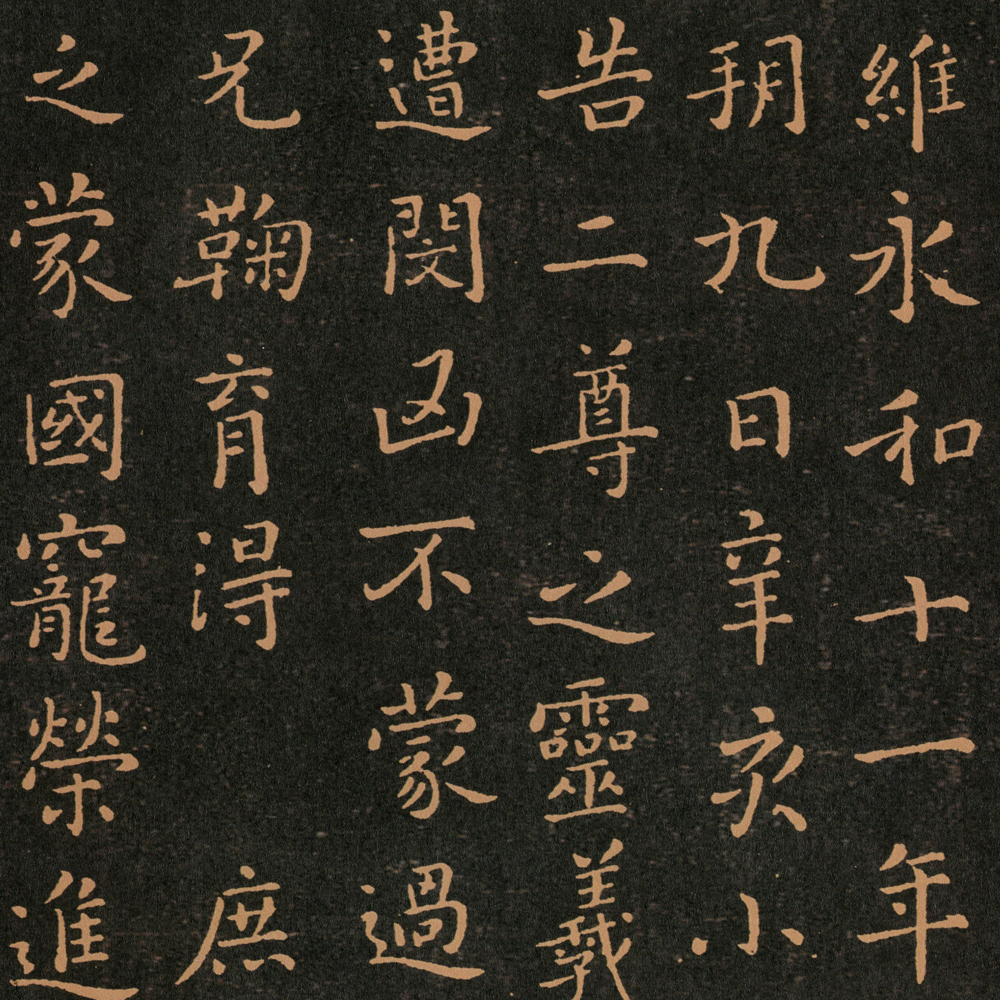 維永和十一年
朔九日辛亥小
告二尊之靈羲
遭閔凶不蒙過
兄鞠育得庶
之蒙國寵榮進